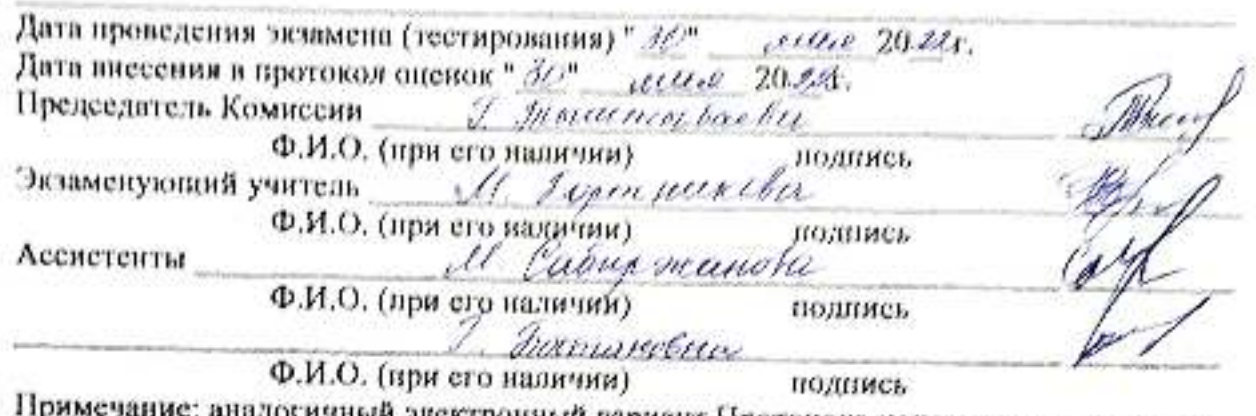 Дата проведения экзамена (тестирования) "30" мая 2022г.
Дата внесения в протокол оценок "30" мая 2022г.
Председатель Комиссии Г.
Ф.И.О. (при его наличии) подпись
Экзаменующий учитель М.
Ф.И.О. (при его наличии) подпись
Ассистенты М Сабиржанова
Ф.И.О. (при его наличии) подпись
Ф.И.О. (при его наличии) подпись
Примечание: аналогичный электронный вариант Протокола